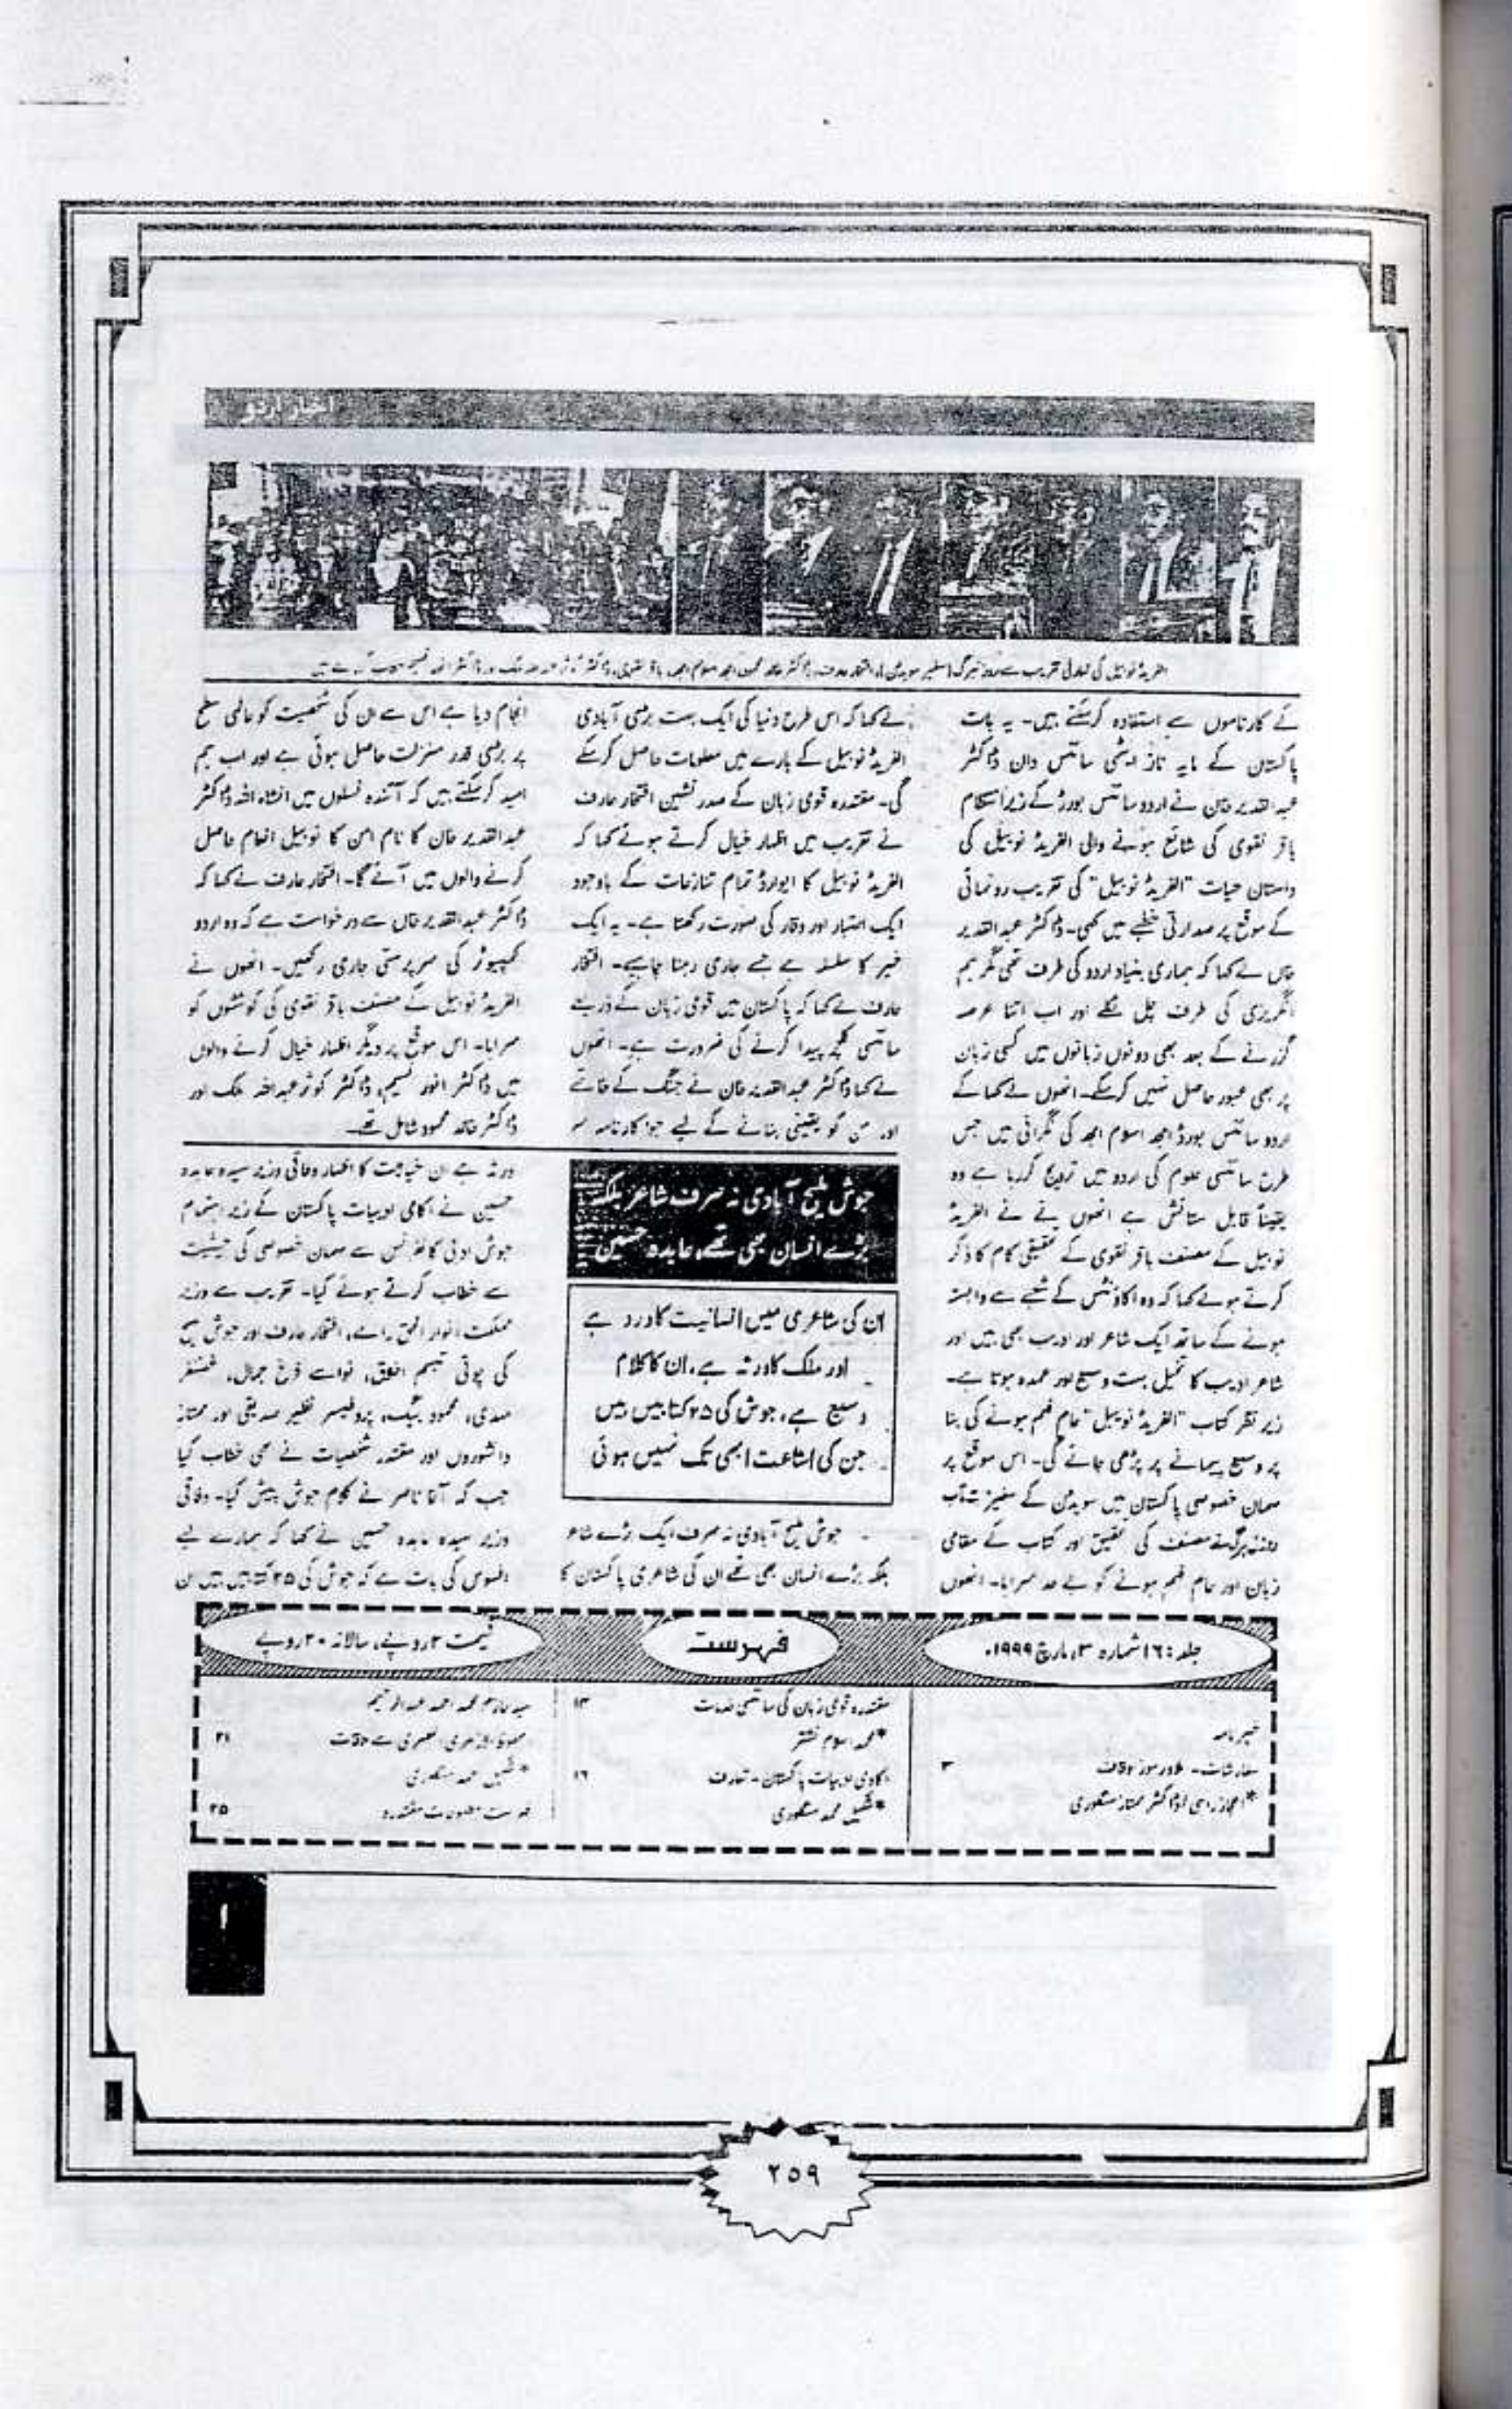 اخبار اردو
کے کارناموں سے استفادہ کرسکتے ہیں۔ یہ بات
پاکستان کے مایہ ناز ایٹمی سائنس دان ڈاکٹر
عبدالقدیر خان نے اردو سائنس بورڈ کے زیراہتمام
باقر نقوی کی شائع ہونے والی الفریڈ نوبیل کی
داستان حیات "الفریڈ نوبیل" کی تقریب رونمائی
کے موقع پر صدارتی خطبے میں کہی۔ ڈاکٹر عبدالقدیر
خاں نے کہا کہ ہماری بنیاد اردو کی طرف تھی مگر ہم
انگریزی کی طرف چل نکلے اور اب اتنا عرصہ
گزرنے کے بعد بھی دونوں زبانوں میں کسی زبان
پر بھی عبور حاصل نہیں کرسکے۔ انھوں نے کہا کے
اردو سائنس بورڈ امجد اسلام امجد کی نگرانی میں جس
طرح سائنسی علوم کی اردو میں ترویج کررہا ہے وہ
یقیناً قابل ستائش ہے انھوں نے الفریڈ
نوبیل کے مصنف باقر نقوی کے تحقیقی کام کا ذکر
کرتے ہوئے کہا کہ وہ اکاؤنٹس کے شعبے سے وابستہ
ہونے کے ساتھ ایک شاعر اور ادیب بھی ہیں اور
شاعر ادیب کا تخیل بہت وسیع اور عمدہ ہوتا ہے۔
زیر نظر کتاب "الفریڈ نوبیل" عام فہم ہونے کی بنا
پر وسیع پیمانے پر پڑھی جائے گی۔ اس موقع پر
مہمان خصوصی پاکستان میں سویڈن کے سفیر
مصنف کی تحقیق اور کتاب کے مقامی
زبان اور عام فہم ہونے کو بے حد سراہا۔ انھوں
نے کہا کہ اس طرح دنیا کی ایک بہت بڑی آبادی
الفریڈ نوبیل کے بارے میں معلومات حاصل کرسکے
گی۔ مقتدرہ قومی زبان کے صدر نشین افتخار عارف
نے تقریب میں اظہار خیال کرتے ہوئے کہا کہ
الفریڈ نوبیل کا ایوارڈ تمام تنازعات کے باوجود
ایک اعتبار اور وقار کی صورت رکھتا ہے۔ یہ ایک
خیر کا سلسلہ ہے جسے جاری رہنا چاہیے۔ افتخار
عارف نے کہا کہ پاکستان میں قومی زبان کے ذریعے
سائنسی کلچر پیدا کرنے کی ضرورت ہے۔ انھوں
نے کہا ڈاکٹر عبدالقدیر خان نے جنگ کے خاتمے
اور امن کو یقینی بنانے کے لیے جو کارنامہ سر
انجام دیا ہے اس سے ان کی شخصیت کو عالمی سطح
پر بڑی قدر منزلت حاصل ہوئی ہے اور اب ہم
امید کرسکتے ہیں کہ آئندہ نسلوں میں انشاء اللہ ڈاکٹر
عبدالقدیر خان کا نام امن کا نوبیل انعام حاصل
کرنے والوں میں آئے گا۔ افتخار عارف نے کہا کہ
ڈاکٹر عبدالقدیر خاں سے درخواست ہے کہ وہ اردو
کمپیوٹر کی سرپرستی جاری رکھیں۔ انھوں نے
الفریڈ نوبیل کے مصنف باقر نقوی کی کوششوں کو
سراہا۔ اس موقع پر دیگر اظہار خیال کرنے والوں
میں ڈاکٹر انور نسیم، ڈاکٹر کوثر عبداللہ ملک اور
ڈاکٹر خالد محمود شامل تھے۔
جوش ملیح آبادی نہ صرف شاعر بلکہ
بڑے انسان بھی تھے، عابدہ حسین
ان کی شاعری میں انسانیت کا درد ہے
اور ملک کا ورثہ ہے، ان کا کلام
وسیع ہے، جوش کی ۲۵ کتابیں ہیں
جن کی اشاعت ابھی تک نہیں ہوئی
جوش ملیح آبادی نہ صرف ایک بڑے شاعر
بلکہ بڑے انسان بھی تھے ان کی شاعری پاکستان کا
ورثہ ہے ان خیالات کا اظہار وفاقی وزیر سیدہ عابدہ
حسین نے اکادمی ادبیات پاکستان کے زیر اہتمام
جوش ادبی کانفرنس سے مہمان خصوصی کی حیثیت
سے خطاب کرتے ہوئے کیا۔ تقریب سے وزیر
مملکت انوار الحق رامے، افتخار عارف اور جوش
کی پوتی تبسم اخلاق، نواسے فرخ جمال، غضنفر
مہدی، محمود بیگ، پروفیسر نظیر صدیقی اور ممتاز
دانشوروں اور مقتدر شخصیات نے بھی خطاب کیا
جب کہ آغا ناصر نے کلام جوش پیش کیا۔ وفاقی
وزیر سیدہ عابدہ حسین نے کہا کہ ہمارے لیے
افسوس کی بات ہے کہ جوش کی ۲۵ کتابیں ہیں ان
جلد: ۱۶ شمارہ ۳، مارچ ۱۹۹۹ء
فہرست
قیمت ۲ روپے، سالانہ ۲۰ روپے
خبرنامہ
۳
مقتدرہ قومی زبان کی سائنسی خدمات ۱۳
*محمد اسلام نشتر
اکادمی ادبیات پاکستان۔ تعارف ۱۶
۲۱
۲۵
۱
۲۵۹